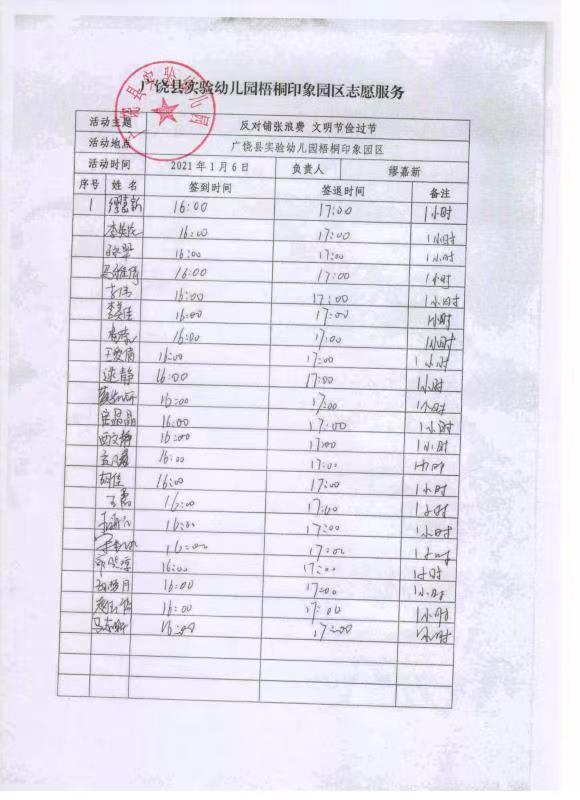 广饶县实验幼儿园梧桐印象园区志愿服务
广饶县实验幼儿园
活动主题 反对铺张浪费 文明节俭过节
活动地点 广饶县实验幼儿园梧桐印象园区
活动时间 2021年1月6日 负责人 缪嘉新
序号 姓名 签到时间 签退时间 备注
1 缪嘉新 16:00 17:00 1小时
16:00 17:00 1小时
16:00 17:00 1小时
16:00 17:00 1小时
李伟 16:00 17:00 1小时
16:00 17:00 1小时
16:00 17:00 1小时
王爱倩 16:00 17:00 1小时
逯静 16:00 17:00 1小时
16:00 17:00 1小时
晶晶 16:00 17:00 1小时
西文静 16:00 17:00 1小时
16:00 17:00 1小时
胡佳 16:00 17:00 1小时
王磊 16:00 17:00 1小时
16:00 17:00 1小时
16:00 17:00 1小时
16:00 17:00 1小时
16:00 17:00 1小时
16:00 17:00 1小时
16:00 17:00 1小时